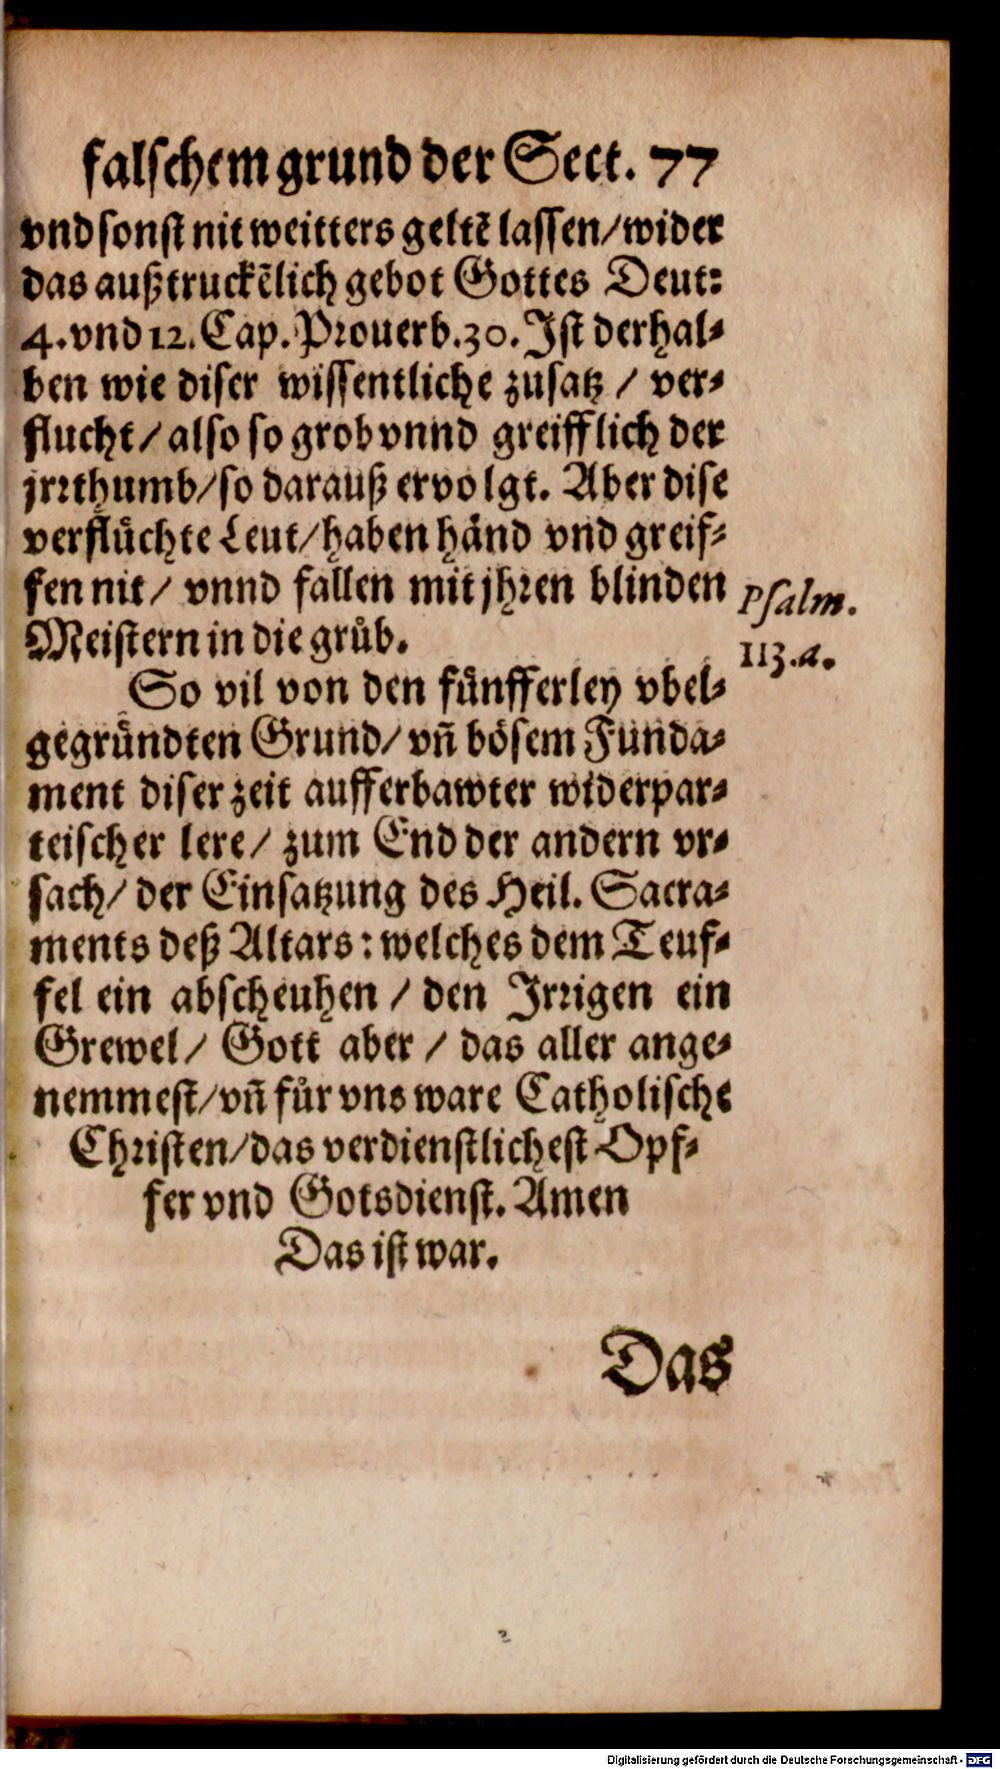 falschem grund der Sect. 77
vnd sonst nit weitters geltẽ lassen/wider
das außtruckẽlich gebot Gottes Deut:
4. vnd 12. Cap. Prouerb. 30. Ist derhal-
ben wie diser wissentliche zusatz / ver-
flucht/ also so grob vnnd greifflich der
jrrthumb/so darauß ervolgt. Aber dise
verflůchte Leut/haben händ vnd greif-
fen nit/ vnnd fallen mit jhren blinden
Meistern in die grůb.
Psalm.
113.a.
So vil von den fünfferley vbel-
gegründten Grund/ vñ bösem Funda-
ment diser zeit aufferbawter widerpar-
teischer lere/ zum End der andern vr-
sach/ der Einsatzung des Heil. Sacra-
ments deß Altars: welches dem Teuf-
fel ein abscheuhen / den Irrigen ein
Grewel/ Gott aber / das aller ange-
nemmest/vñ für vns ware Catholische
Christen/das verdienstlichest Opf-
fer vnd Gotsdienst. Amen
Das ist war.
Das
Digitalisierung gefördert durch die Deutsche Forschungsgemeinschaft - DFG